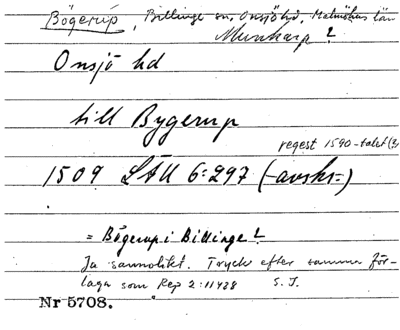 Bögerup, Billinge sn, Onsjö hd, Malmöhus län
Munkarp?
Onsjö hd
till Bygerup
regest 1590-talet (?)
1509 LÄU 6:297 (-avskr-)
= Bögerup i Billinge?
Ja sannolikt. Tryck efter samma för-
laga som Rep 2:11428 S. J.
Nr 5708.